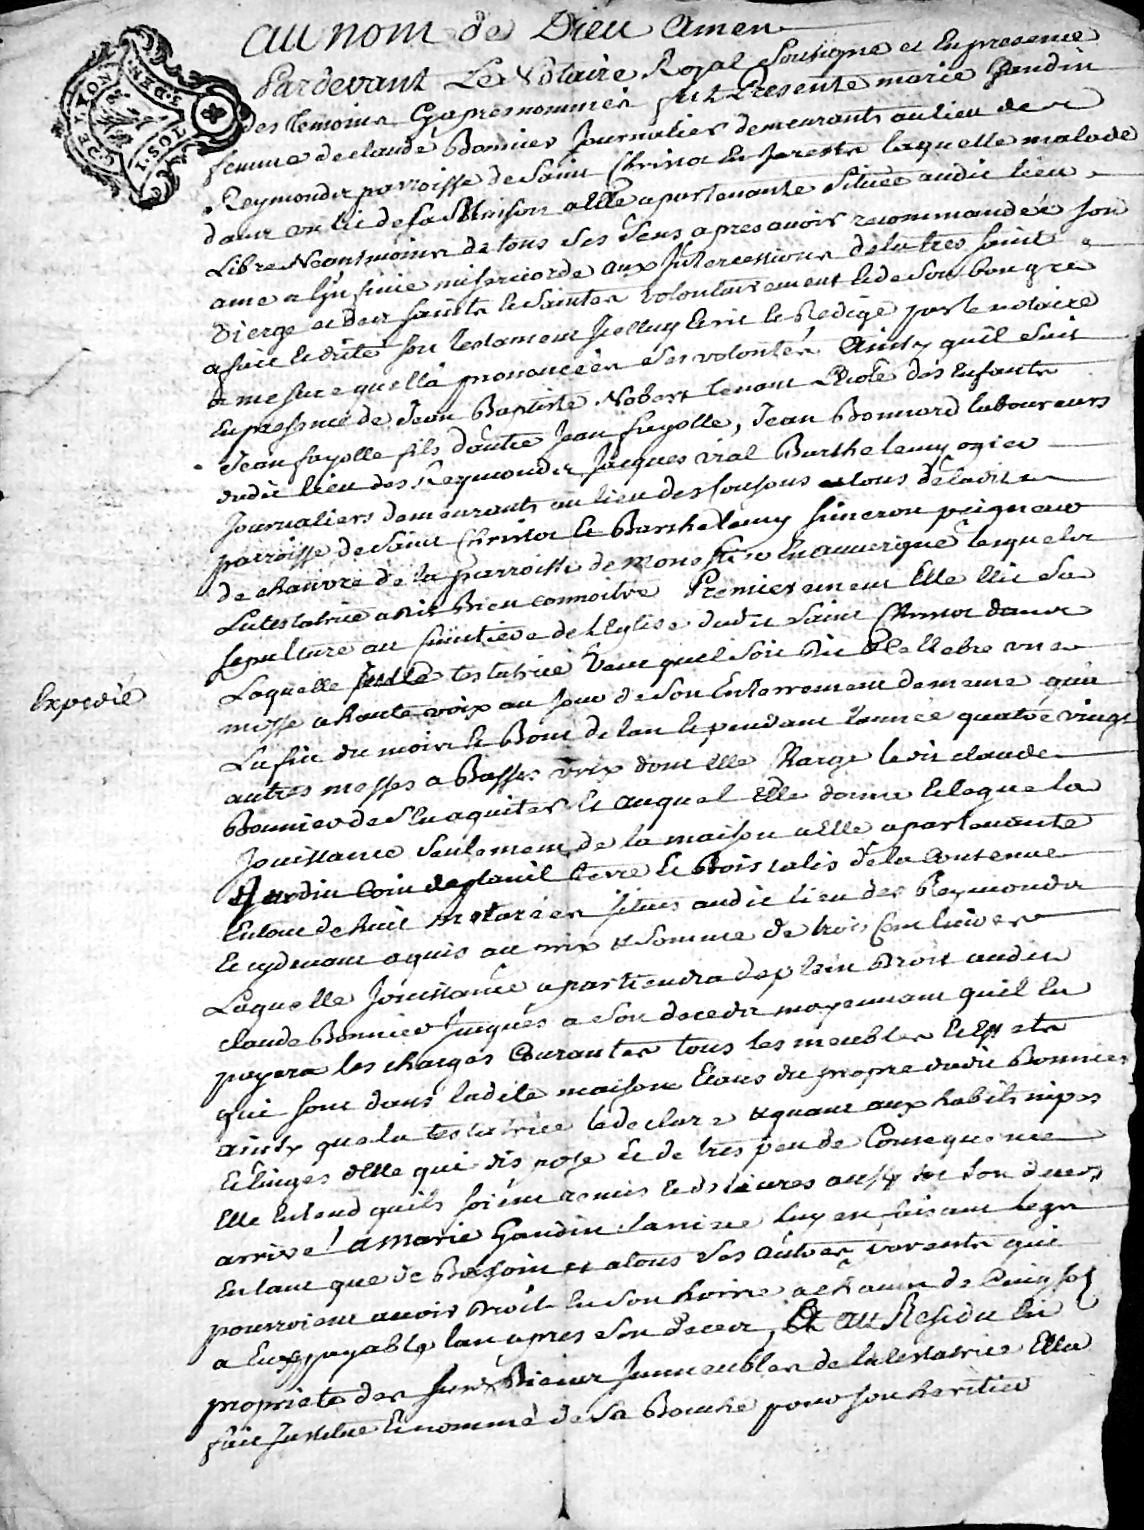 GDE LYON
1.SOL.
8.DEN
au nom de Dieu amen
Pardevant Le Notaire Royal Soussigne et En presence
des temoins Cyapres nommés fut Presente marie Gaudin
femme de claude Bonnier Journalier demeurants au lieu de
Reymonds parroisse de Saint Christot En farests laquelle malade
dans un lit de sa Maison a Elle apartenante Située audit lieu
Libre Neantmoins de tous Ses Sens apres avoir recommandée Son
ame a L'jnfinie misericorde aux jntercessions de la tres Sainte
vierge et des saints et Saintes volontairement et de Son bon gre
a fait Et dicté son testament jcelluy Ecrit Et Redigé par le notaire
a mesure quelle a prononcées Ses volontés Ainsy quil Suit
En presence de Jean Baptiste Nobert tenant Ecole des Enfants
Jean fayolle fils d'autre Jean fayolle, Jean Bonnard laboureurs
dudit lieu des Reymonds Jacques vial Barthelemy ogier
Journaliers demeurants au lieu des sousons tous de ladite
parroisse de Saint Christot Et Barthelemy simeron peigneur
de chanvre de la parroisse de monestier En auvergne lesquels
La testatrice a dit Bien connoitre Premierement Elle Elit Sa
sepulture au simetiere de l'Eglise dudit Saint Christot dans
Laquelle testatrice veut quil Soit Dit Et Cellebre une
messe a haute voix au jour de Son Enterrement de meme qu'a
La fin du mois Et Bout de l'an Et pendant l'année quatre vingt
autres messes a Basses voix dont Elle Charge ledit claude
Bonnier de S'En aquiter Et auquel Elle donne Et legue la
jouissance Seulement de la maison a Elle apartenante
Jardin Coin de terre Et Bois talis de la contenue
Entout de huit metarées situés audit lieu des Reymonds
Et cydevant aquis au prix et Somme de trois Cent livres
Laquelle jouissance apartiendra de plein Droit audit
claude Bonnier jusques a Son deceds moyennant quil En
payera les charges Courantes tous les meubles Et Effets
qui sont dans ladite maison Etans du propre dudit Bonnier
ainsy que la testatrice le declare et quant aux habits nipes
Et linges d'Elle qui dis pose Et de tres peu de Consequence
Elle Entend quils soient remis Et delivres aussy tot Son deces
arrivé a marie Gaudin Sa niece luy en faisant legs
En tant que de Besoin et a tous Ses autres parents qui
pourroient avoir Droit En Son hoirie a chacun de Cinq sol
a Eux payable l'an apres Son deceds, Et au Residu En
proprieté des Susd. Biens Immeubles de la testatrice Elle
fait Institue Et nomme de Sa Bouche pour Son heritier
Expedié